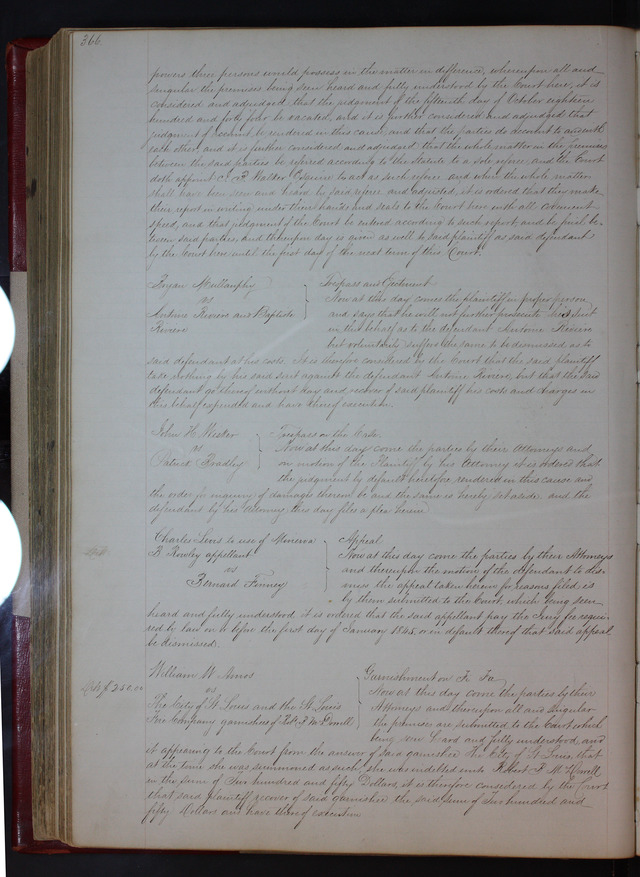 366
powers three persons would possess in the matter in difference, whereupon all and
singular the premises being seen heard and fully understood by the Court here, it is
considered and adjudged that the judgment of the fifteenth day of October eighteen
hundred and forty four be vacated, and it is further considered and adjudged that
judgment of account be rendered in this cause, and that the parties do account to and with
each other and it is further considered and adjudged that the whole matter in the premises
between the said parties be referred according to the Statute to a sole referee, and the Court
doth appoint Walker Esquire to act as such referee and when the whole matter
shall have been seen and heard by said referee and adjusted, it is ordered that they make
their report in writing under their hands and seals to the Court here with all convenient
speed, and that judgment of the Court be entered according to such report, and be final be-
tween said parties, and thereupon day is given as well to said plaintiff as said defendant
by the Court here until the first day of the next term of this Court.
Bryan Mullanphy
vs
Antoine Riviere and Baptiste
Riviere
Trespass and Ejectment
Now at this day comes the plaintiff in proper person
and says that he will not further prosecute his suit
in this behalf as to the defendant Antoine Riviere
but voluntarily suffers the same to be dismissed as to
said defendant at his costs. It is therefore considered by the Court that the said plaintiff
take nothing by his said suit against the defendant Antoine Riviere, but that the said
defendant go thereof without day and recover of said plaintiff his costs and charges in
this behalf expended and have thereof execution.
John H.
vs
Patrick Bradley
Trespass on the Case
Now at this day come the parties by their Attorneys and
on motion of the Plaintiff by his Attorney it is ordered that
the judgment by default heretofore rendered in this cause and
the order for inquiry of damages thereon be and the same is hereby set aside. and the
defendant by his Attorney this day files a plea herein.
Charles to use of Minerva
B Rowley appellant
vs
Bernard Finney
Appeal
Now at this day come the parties by their Attorneys
and thereupon the motion of the defendant to dis-
miss the appeal taken herein for reasons filed, is
by them submitted to the Court, which being seen
heard and fully understood it is ordered that the said appellant pay the Jury fee requi-
red by law on or before the first day of January 1845, or in default thereof that said appeal
be dismissed.
$250.00
William W Amos
vs
The City of St Louis and the St Louis
Fire Company garnishees of
Garnishment on Fi Fa
Now at this day come the parties by their
Attorneys and thereupon all and singular
the premises are submitted to the Court which
being seen heard and fully understood, and
it appearing to the Court from the answer of said garnishee The City of St Louis, that
at the time she was summoned as such, she was indebted unto Robert
in the sum of Two hundred and fifty Dollars, it is therefore considered by the Court
that said plaintiff recover of said garnishee the said sum of Two hundred and
fifty Dollars and have thereof execution